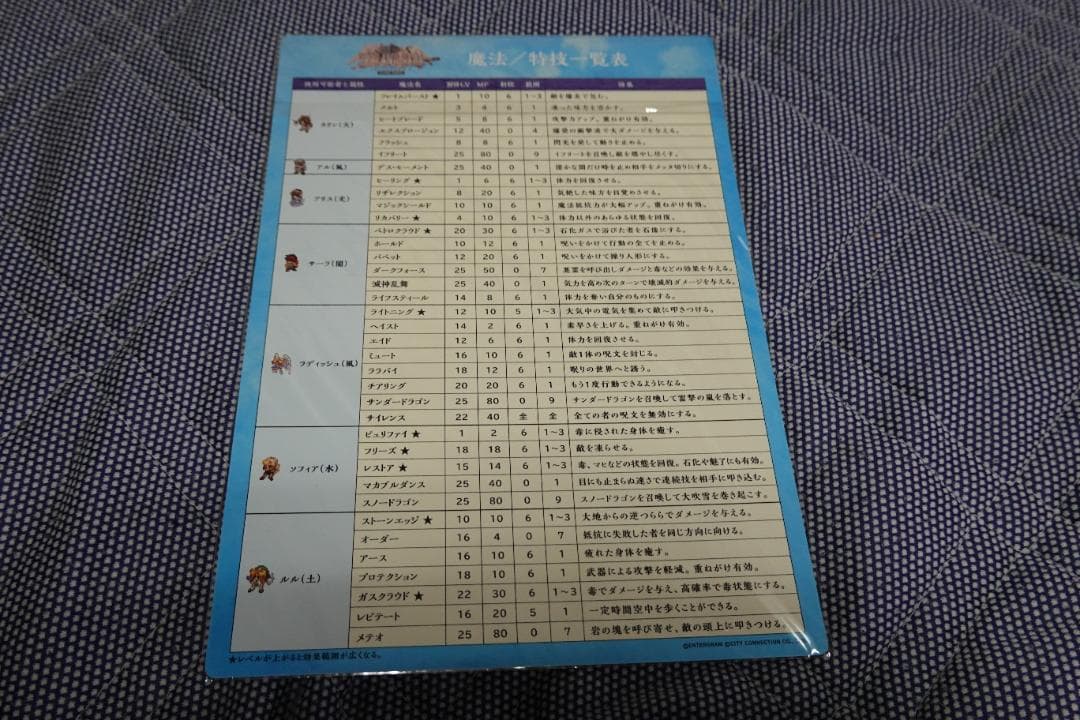 魔法／特技一覧表
使用可能者と属性 魔法名 習得LV MP 射程 範囲 効果
カリン(火)
フレイムバースト★ 1 10 6 1~3 敵を爆炎で包む。
メルト 3 4 6 1 凍った味方を溶かす。
ヒートブレード 5 8 6 1 攻撃力アップ。重ねがけ有効。
エクスプロージョン 12 40 0 4 爆発の衝撃波で大ダメージを与える。
フラッシュ 8 8 6 1 閃光を発して動きを止める。
イフリート 25 80 0 9 イフリートを召喚し敵を燃やし尽くす。
アル(風) デス・モーメント 25 40 0 1 僅かな間だけ時を止め相手をメッタ切りにする。
アリス(光)
ヒーリング★ 1 6 6 1~3 体力を回復させる。
リザレクション 8 20 6 1 気絶した味方を目覚めさせる。
マジックシールド 10 10 6 1 魔法抵抗力が大幅アップ。重ねがけ有効。
リカバリー★ 4 10 6 1~3 体力以外のあらゆる状態を回復。
サーラ(闇)
ペトロクラウド★ 20 30 6 1~3 石化ガスで浴びた者を石像にする。
ホールド 10 12 6 1 呪いをかけて行動の全てを止める。
パペット 12 20 6 1 呪いをかけて操り人形にする。
ダークフォース 25 50 0 7 悪霊を呼び出しダメージと毒などの効果を与える。
滅神乱舞 25 40 0 1 気力を高め次のターンで壊滅的ダメージを与える。
ライフスティール 14 8 6 1 体力を奪い自分のものにする。
ラディッシュ(風)
ライトニング★ 12 10 5 1~3 大気中の電気を集めて敵に叩きつける。
ヘイスト 14 2 6 1 素早さを上げる。重ねがけ有効。
エイド 12 6 6 1 体力を回復させる。
ミュート 16 10 6 1 敵1体の呪文を封じる。
ララバイ 18 12 6 1 眠りの世界へと誘う。
チアリング 20 20 6 1 もう1度行動できるようになる。
サンダードラゴン 25 80 0 9 サンダードラゴンを召喚して雷撃の嵐を落とす。
サイレンス 22 40 全 全 全ての者の呪文を無効にする。
ソフィア(水)
ピュリファイ★ 1 2 6 1~3 毒に侵された身体を癒す。
フリーズ★ 18 18 6 1~3 敵を凍らせる。
レストア★ 15 14 6 1~3 毒、マヒなどの状態を回復。石化や魅了にも有効。
マカブルダンス 25 40 0 1 目にも止まらぬ速さで連続技を相手に叩き込む。
スノードラゴン 25 80 0 9 スノードラゴンを召喚して大吹雪を巻き起こす。
ルル(土)
ストーンエッジ★ 10 10 6 1~3 大地からの逆つららでダメージを与える。
オーダー 16 4 0 7 抵抗に失敗した者を同じ方向に向ける。
アース 16 10 6 1 疲れた身体を癒す。
プロテクション 18 10 6 1 武器による攻撃を軽減。重ねがけ有効。
ガスクラウド★ 22 30 6 1~3 毒でダメージを与え、高確率で毒状態にする。
レビテート 16 20 5 1 一定時間空中を歩くことができる。
メテオ 25 80 0 7 岩の塊を呼び寄せ、敵の頭上に叩きつける。
★レベルが上がると効果範囲が広くなる。
©ENTERGRAM ©CITY CONNECTION CO.,